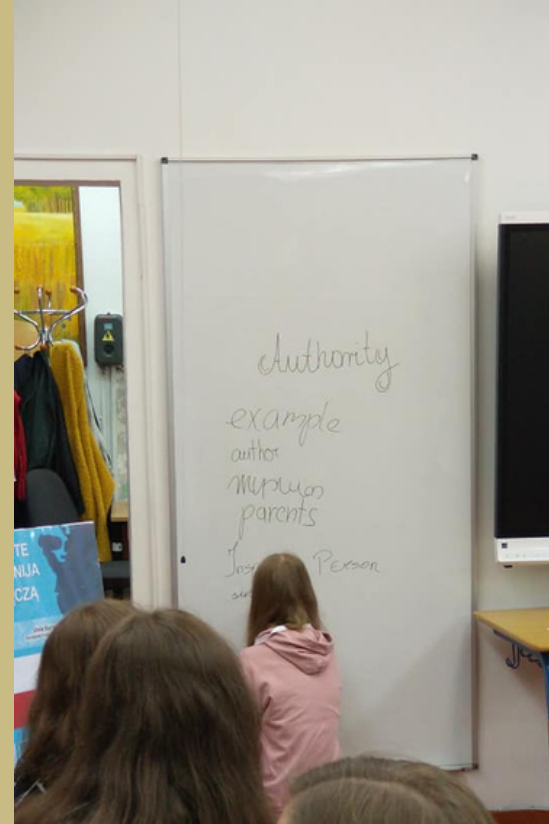 Authority
example
author
parents
Person
TE
NIJA
CZĄ